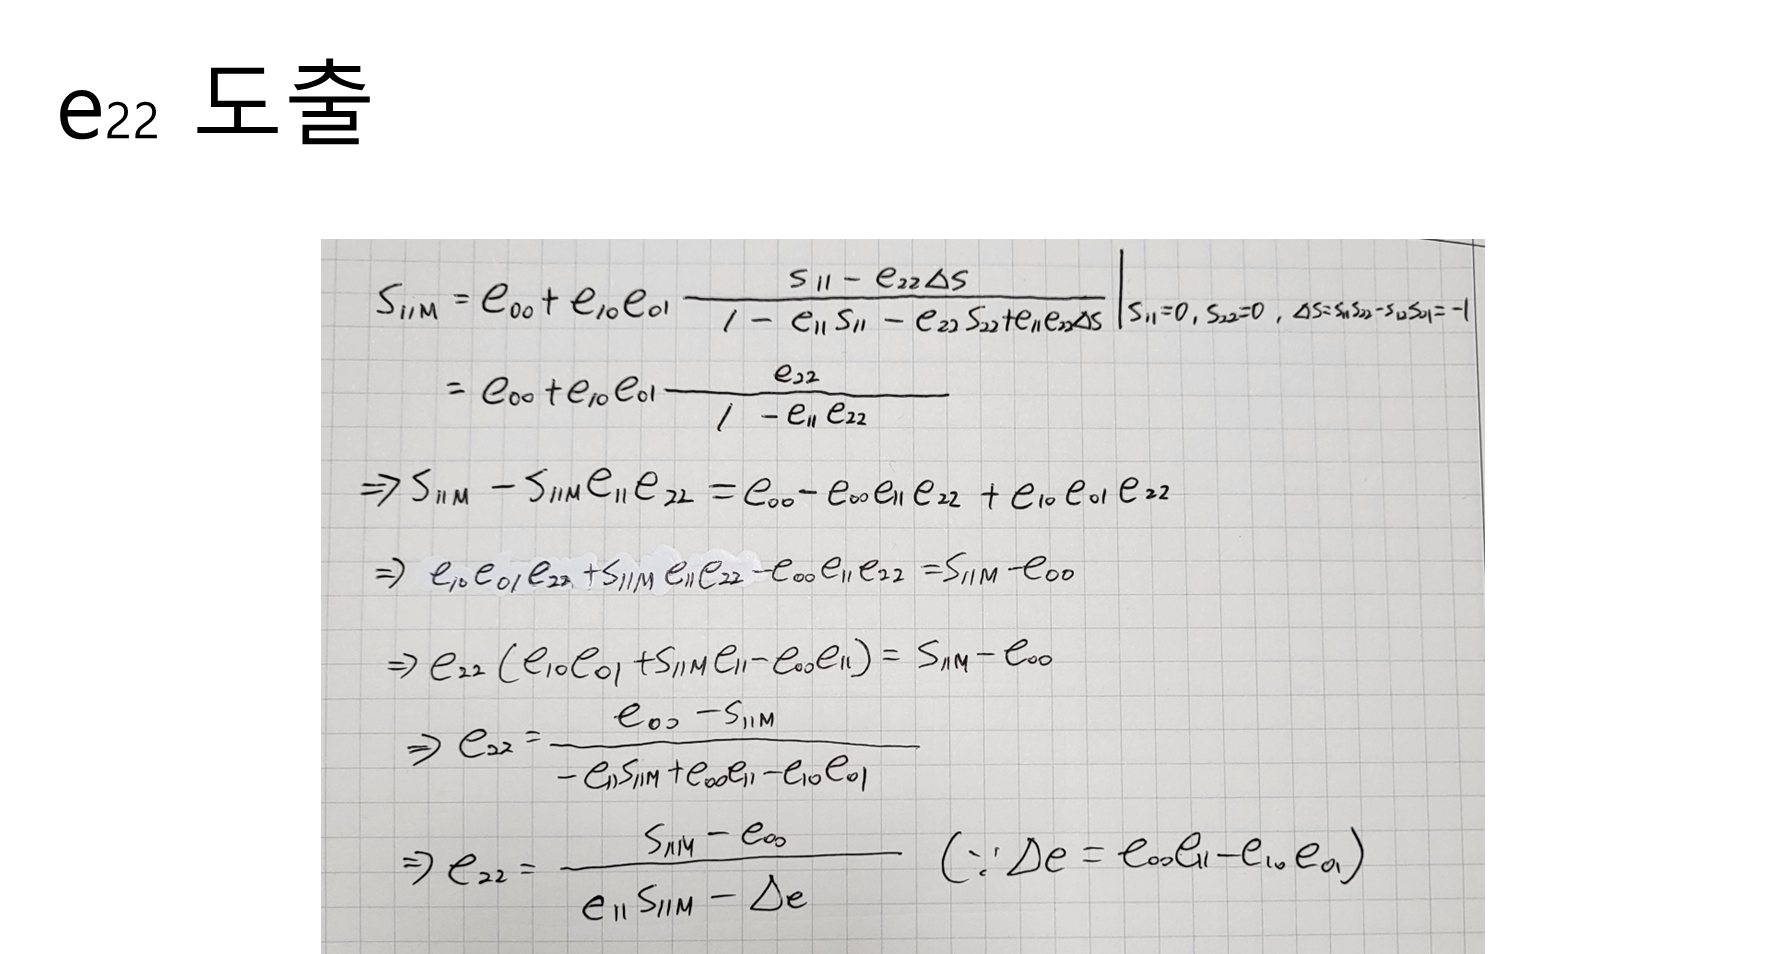 e22 도출
S11M = e00 + e10e01 (S11 - e22ΔS) / (1 - e11S11 - e22S22 + e11e22ΔS) | S11=0, S22=0, ΔS=S11S22-S12S21=-1
= e00 + e10e01 e22 / (1 - e11e22)
⇒ S11M - S11Me11e22 = e00 - e00e11e22 + e10e01e22
⇒ e10e01e22 + S11Me11e22 - e00e11e22 = S11M - e00
⇒ e22(e10e01 + S11Me11 - e00e11) = S11M - e00
⇒ e22 = (e00 - S11M) / (-e11S11M + e00e11 - e10e01)
⇒ e22 = (S11M - e00) / (e11S11M - Δe) (∵ Δe = e00e11 - e10e01)